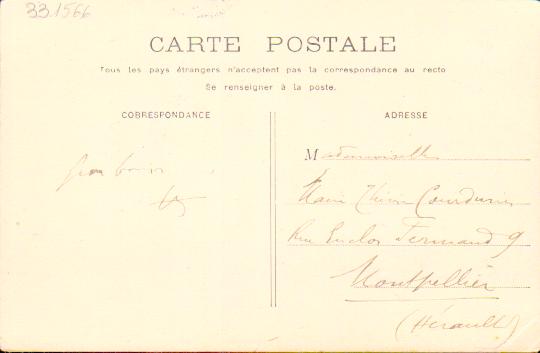 33.1566
CARTE POSTALE
Tous les pays étrangers n'acceptent pas la correspondance au recto
Se renseigner à la poste.
CORRESPONDANCE
ADRESSE
Mademoiselle
Courdurier
Rue Enclos Fermaud 9
Montpellier
(Hérault)